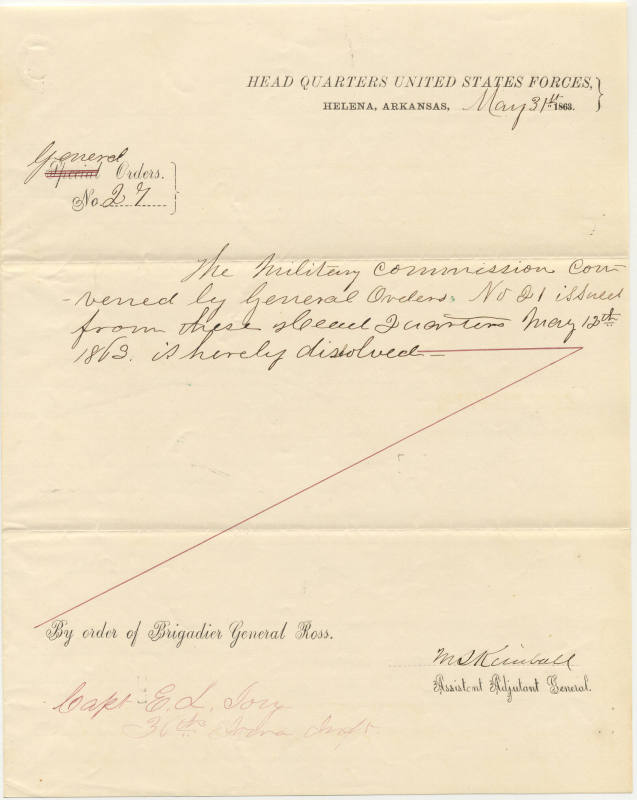 HEAD QUARTERS UNITED STATES FORCES,
HELENA, ARKANSAS, May 31st 1863.
General
Special Orders.
No. 27
The Military Commission Con-
-vened by General Orders No 21 issued
from these Head Quarters May 12th
1863. is hereby dissolved—
By order of Brigadier General Ross.
M S Kimball
Assistent Adjutant General.
Capt E. L. Joy
36th Iowa Inft.